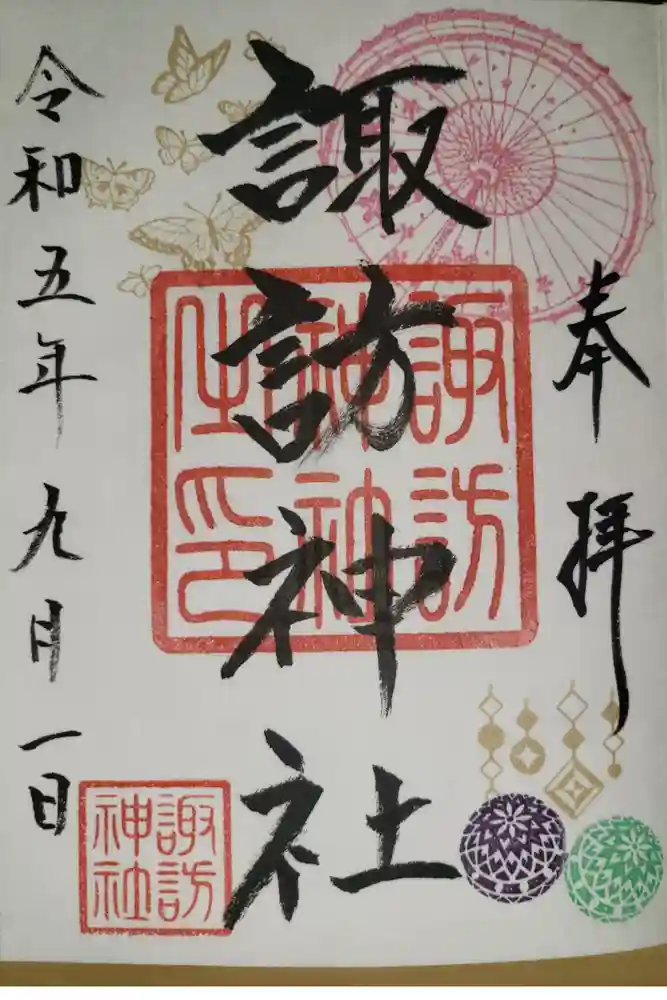 奉拝
諏訪神社
諏訪
神社
之印
諏訪
神社
令和五年九月一日